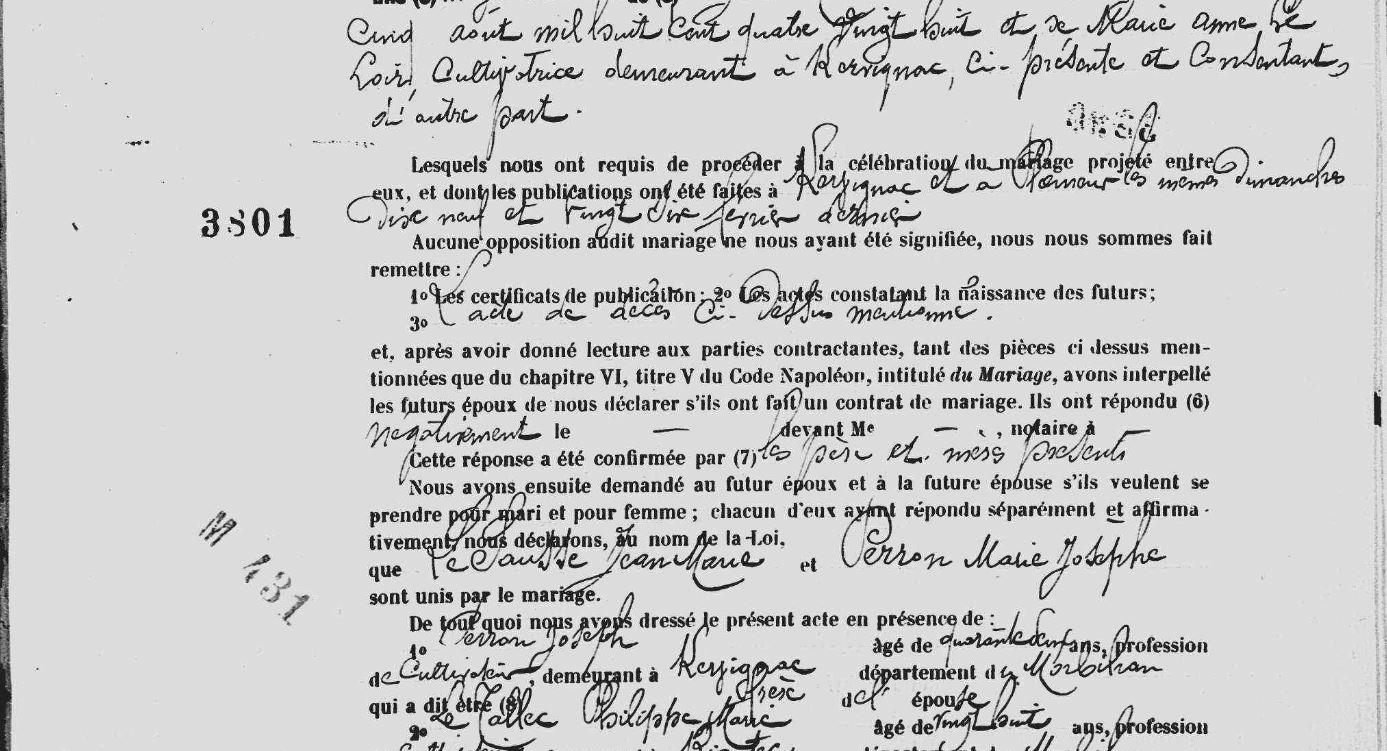 Cinq août mil huit cent quatre vingt huit et de Marie Anne Le
Loir, Cultivatrice demeurant à Kervignac, ci-présente et consentant,
d'autre part.
Lesquels nous ont requis de procéder à la célébration du mariage projeté entre
eux, et dont les publications ont été faites à Kervignac et à Ploemeur les mêmes Dimanches
dix neuf et vingt six février dernier
3801
Aucune opposition audit mariage ne nous ayant été signifiée, nous nous sommes fait
remettre :
1º Les certificats de publication ; 2º Les actes constatant la naissance des futurs ;
3º L'acte de décès ci-dessus mentionné.
et, après avoir donné lecture aux parties contractantes, tant des pièces ci dessus men-
tionnées que du chapitre VI, titre V du Code Napoléon, intitulé du Mariage, avons interpellé
les futurs époux de nous déclarer s'ils ont fait un contrat de mariage. Ils ont répondu (6)
négativement le — devant Me — , notaire à
Cette réponse a été confirmée par (7) les père et mères présents
Nous avons ensuite demandé au futur époux et à la future épouse s'ils veulent se
prendre pour mari et pour femme ; chacun d'eux ayant répondu séparément et affirma-
tivement, nous déclarons, au nom de la Loi,
que Le Sausse Jean Marie et Perron Marie Josephe
sont unis par le mariage.
M 431
De tout quoi nous avons dressé le présent acte en présence de :
1º Perron Joseph âgé de ans, profession
de Cultivateur, demeurant à Kervignac département du Morbihan
qui a dit être (8) frère de l'épouse
2º Le Tallec Philippe Marie âgé de vingt huit ans, profession